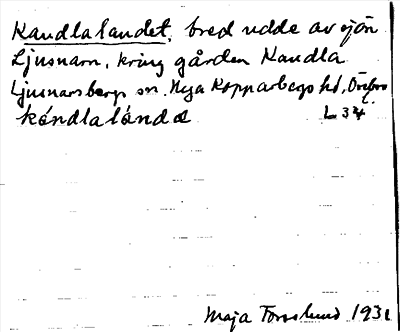 Kandlalandet, bred udde av sjön
Ljusnarn, kring gården Kandla
Ljusnarsbergs sn. Nya Kopparbergs hd, Örebro l.
kándlalándə L 34
Maja Forslund 1931